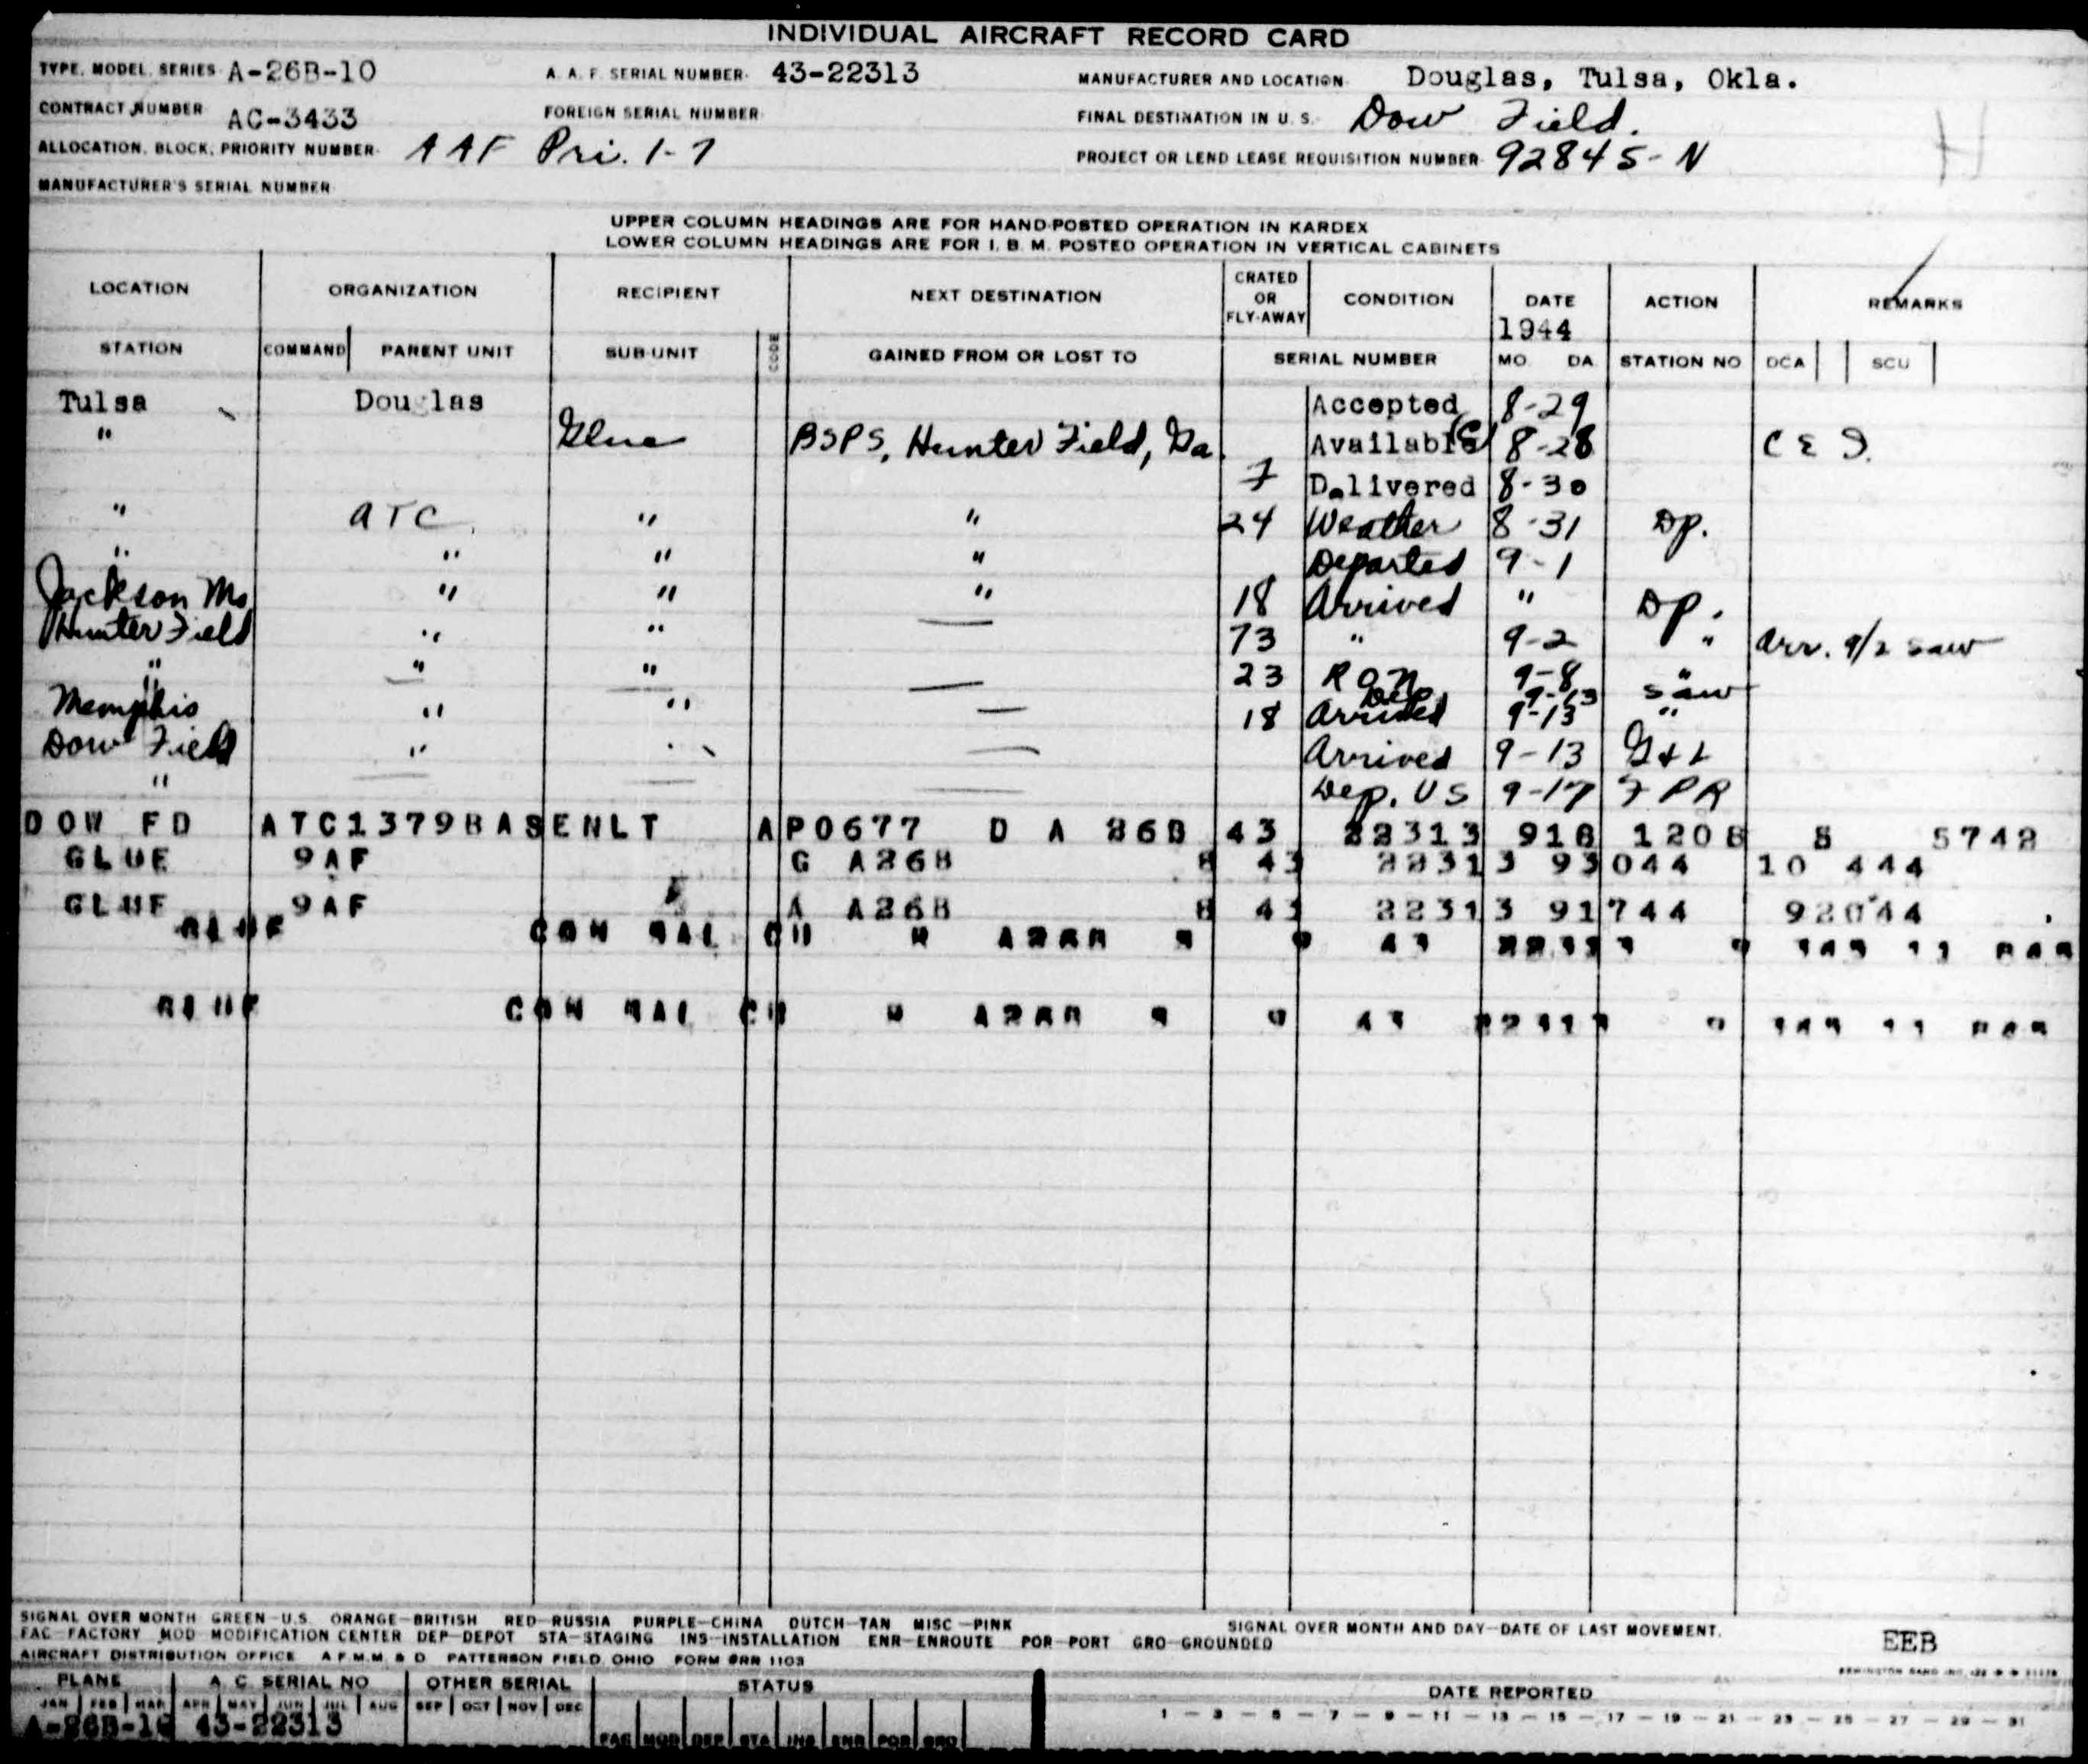 INDIVIDUAL AIRCRAFT RECORD CARD
TYPE, MODEL, SERIES A-26B-10 A. A. F. SERIAL NUMBER 43-22313 MANUFACTURER AND LOCATION Douglas, Tulsa, Okla.
CONTRACT NUMBER AC-3433 FOREIGN SERIAL NUMBER FINAL DESTINATION IN U. S. Dow Field.
ALLOCATION, BLOCK, PRIORITY NUMBER AAF Pri. 1-7 PROJECT OR LEND LEASE REQUISITION NUMBER 92845-N
H
MANUFACTURER'S SERIAL NUMBER
UPPER COLUMN HEADINGS ARE FOR HAND-POSTED OPERATION IN KARDEX
LOWER COLUMN HEADINGS ARE FOR I. B. M. POSTED OPERATION IN VERTICAL CABINETS
LOCATION ORGANIZATION RECIPIENT NEXT DESTINATION CRATED OR FLY-AWAY CONDITION DATE ACTION REMARKS
1944
STATION COMMAND PARENT UNIT SUB-UNIT CODE GAINED FROM OR LOST TO SERIAL NUMBER MO. DA. STATION NO DCA SCU
Tulsa Douglas Accepted 8-29
" Glue BSPS, Hunter Field, Ga. Available (C) 8-28 C & I.
7 Delivered 8-30
" ATC " " 24 Weather 8-31 Dp.
" " " " Departed 9-1
Jackson Ms " " " 18 Arrived " Dp.
Hunter Field " " — 73 " 9-2 " Arr. 9/2 saw
" " " — 23 RON 9-8 "
Dep 9-13 saw
Memphis " " — 18 Arrived 9-13 "
Dow Field " " — Arrived 9-13 G+L
" — — — Dep. US 9-17 FPR
DOW FD ATC1379BASENLT APO677 D A 26B 43 22313 918 1208 8 5742
GLUE 9AF G A26B B 43 22313 93044 10 444
GLUE 9AF A A26B B 43 22313 91744 92044
GLUE CON SAL A26B 43 22313
GLUE CON SAL A26B 43 22313
SIGNAL OVER MONTH GREEN—U.S. ORANGE—BRITISH RED—RUSSIA PURPLE—CHINA DUTCH—TAN MISC—PINK SIGNAL OVER MONTH AND DAY—DATE OF LAST MOVEMENT.
FAC—FACTORY MOD—MODIFICATION CENTER DEP—DEPOT STA—STAGING INS—INSTALLATION ENR—ENROUTE POR—PORT GRO—GROUNDED
EEB
AIRCRAFT DISTRIBUTION OFFICE A.F.M.M. & D. PATTERSON FIELD, OHIO FORM 1103
PLANE A. C. SERIAL NO OTHER SERIAL STATUS DATE REPORTED
JAN FEB MAR APR MAY JUN JUL AUG SEP OCT NOV DEC 1 — 3 — 5 — 7 — 9 — 11 — 13 — 15 — 17 — 19 — 21 — 23 — 25 — 27 — 29 — 31
A-26B-10 43-22313
FAC MOD DEP STA INS ENR POR GRO